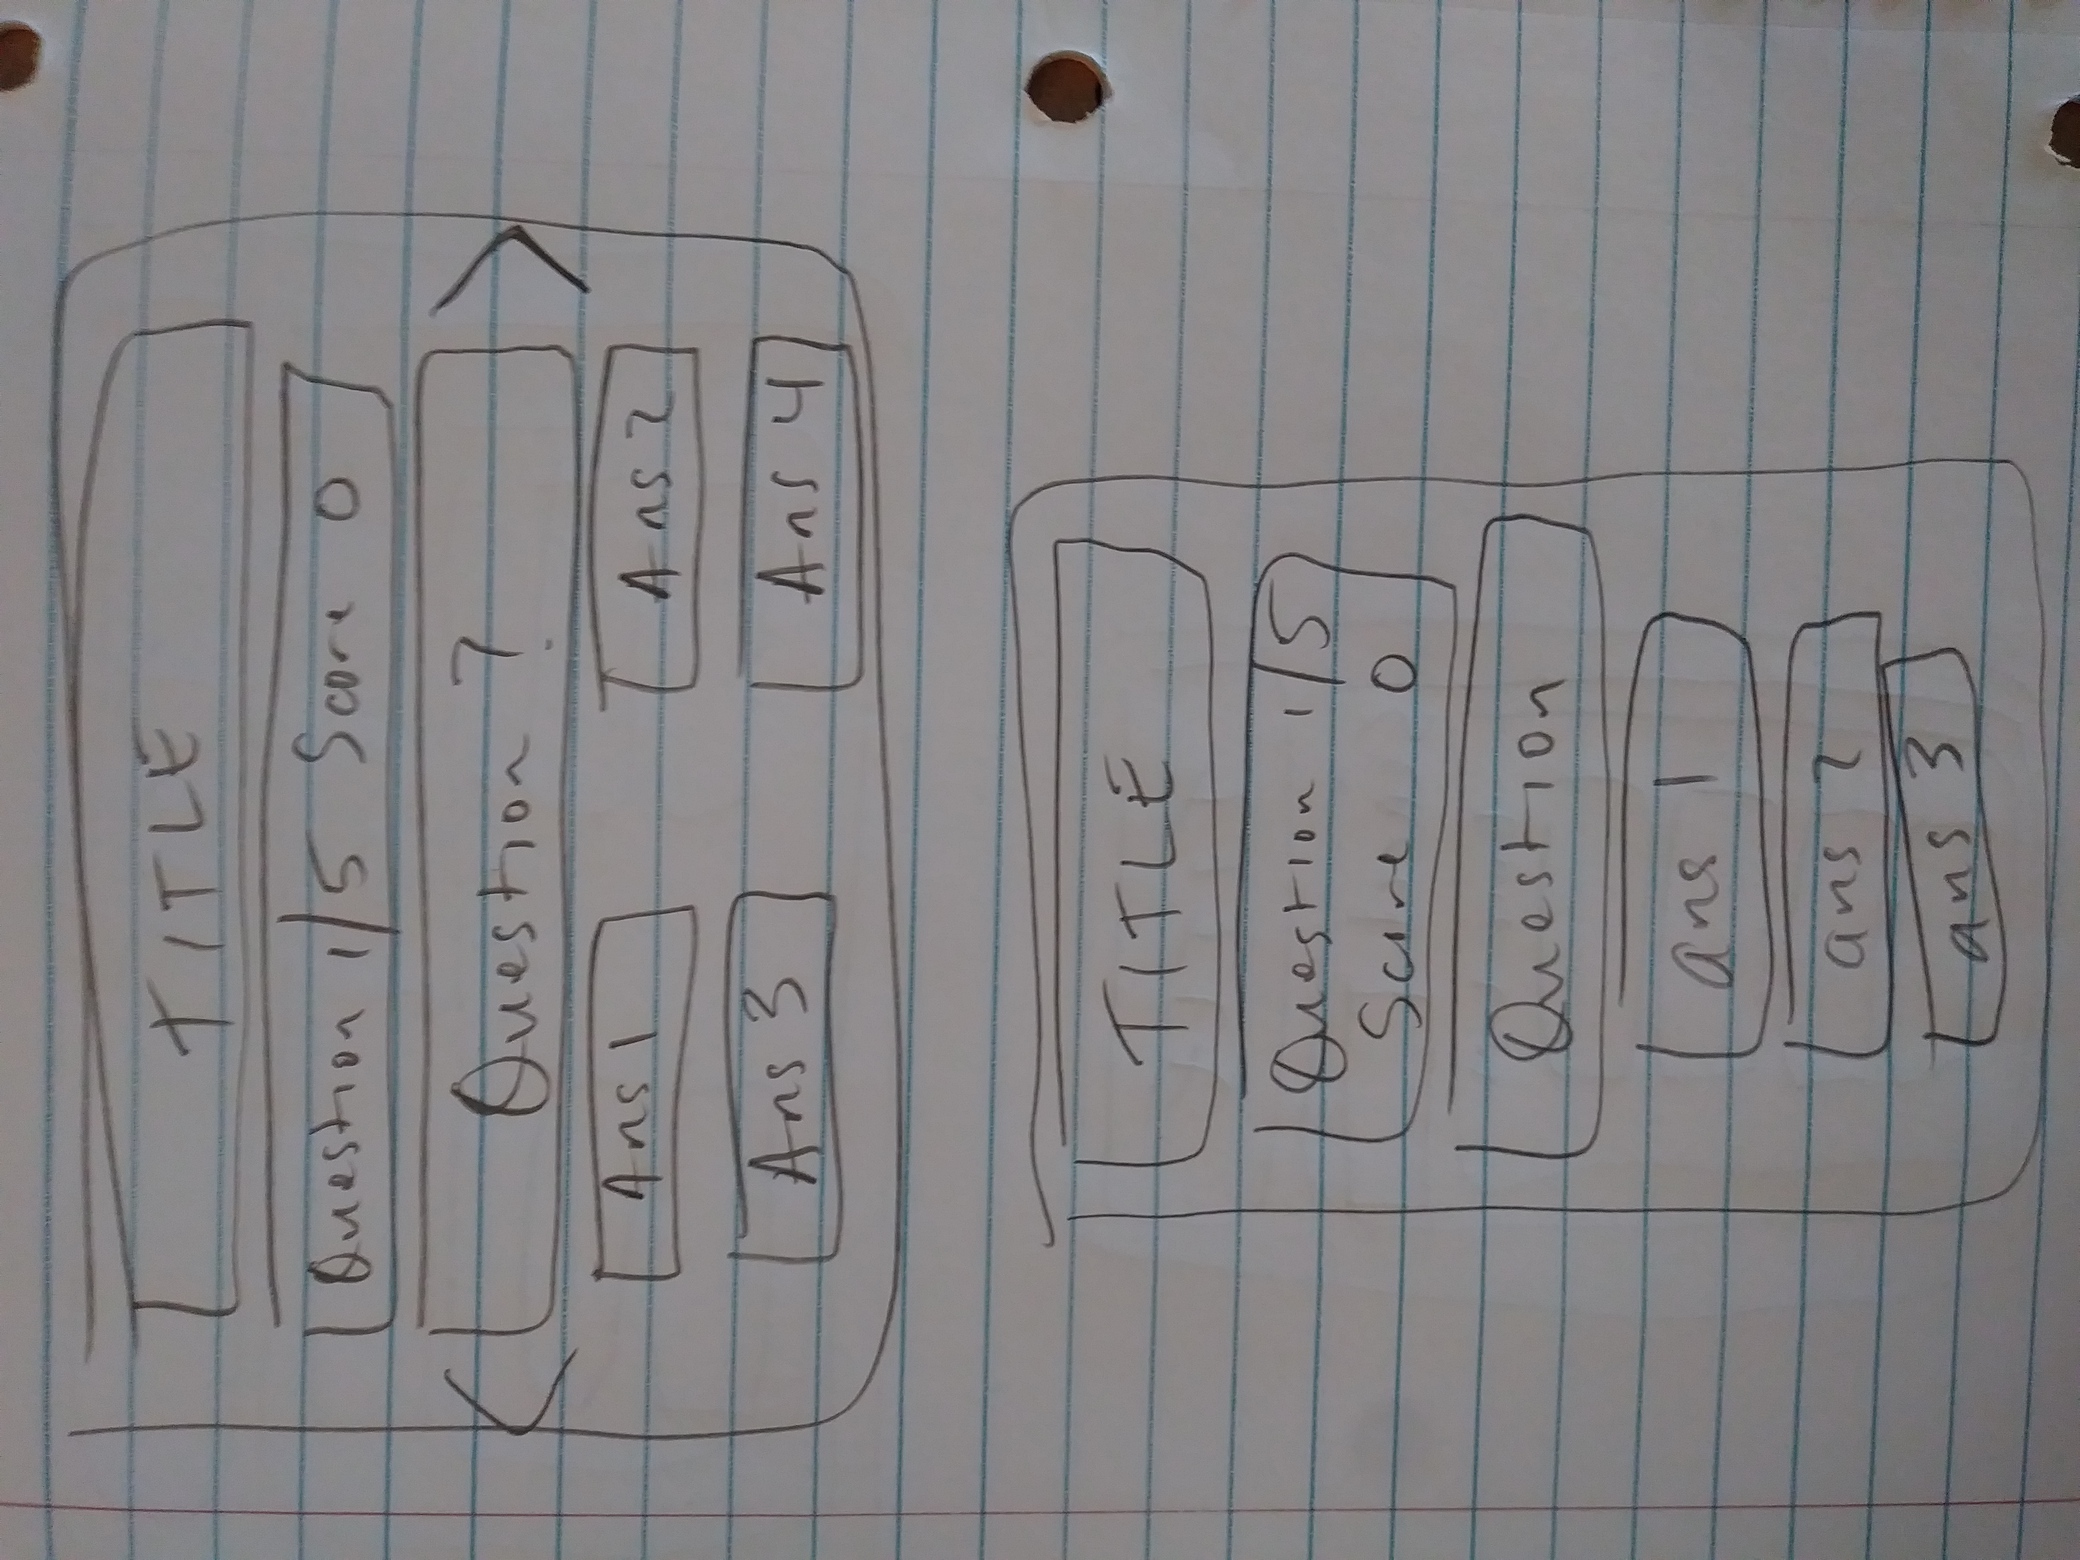 TITLE
Question 1/5 Score 0
Question ?
Ans 1 Ans 2
Ans 3 Ans 4
TITLE
Question 1/5
Score 0
Question
ans 1
ans 2
ans 3